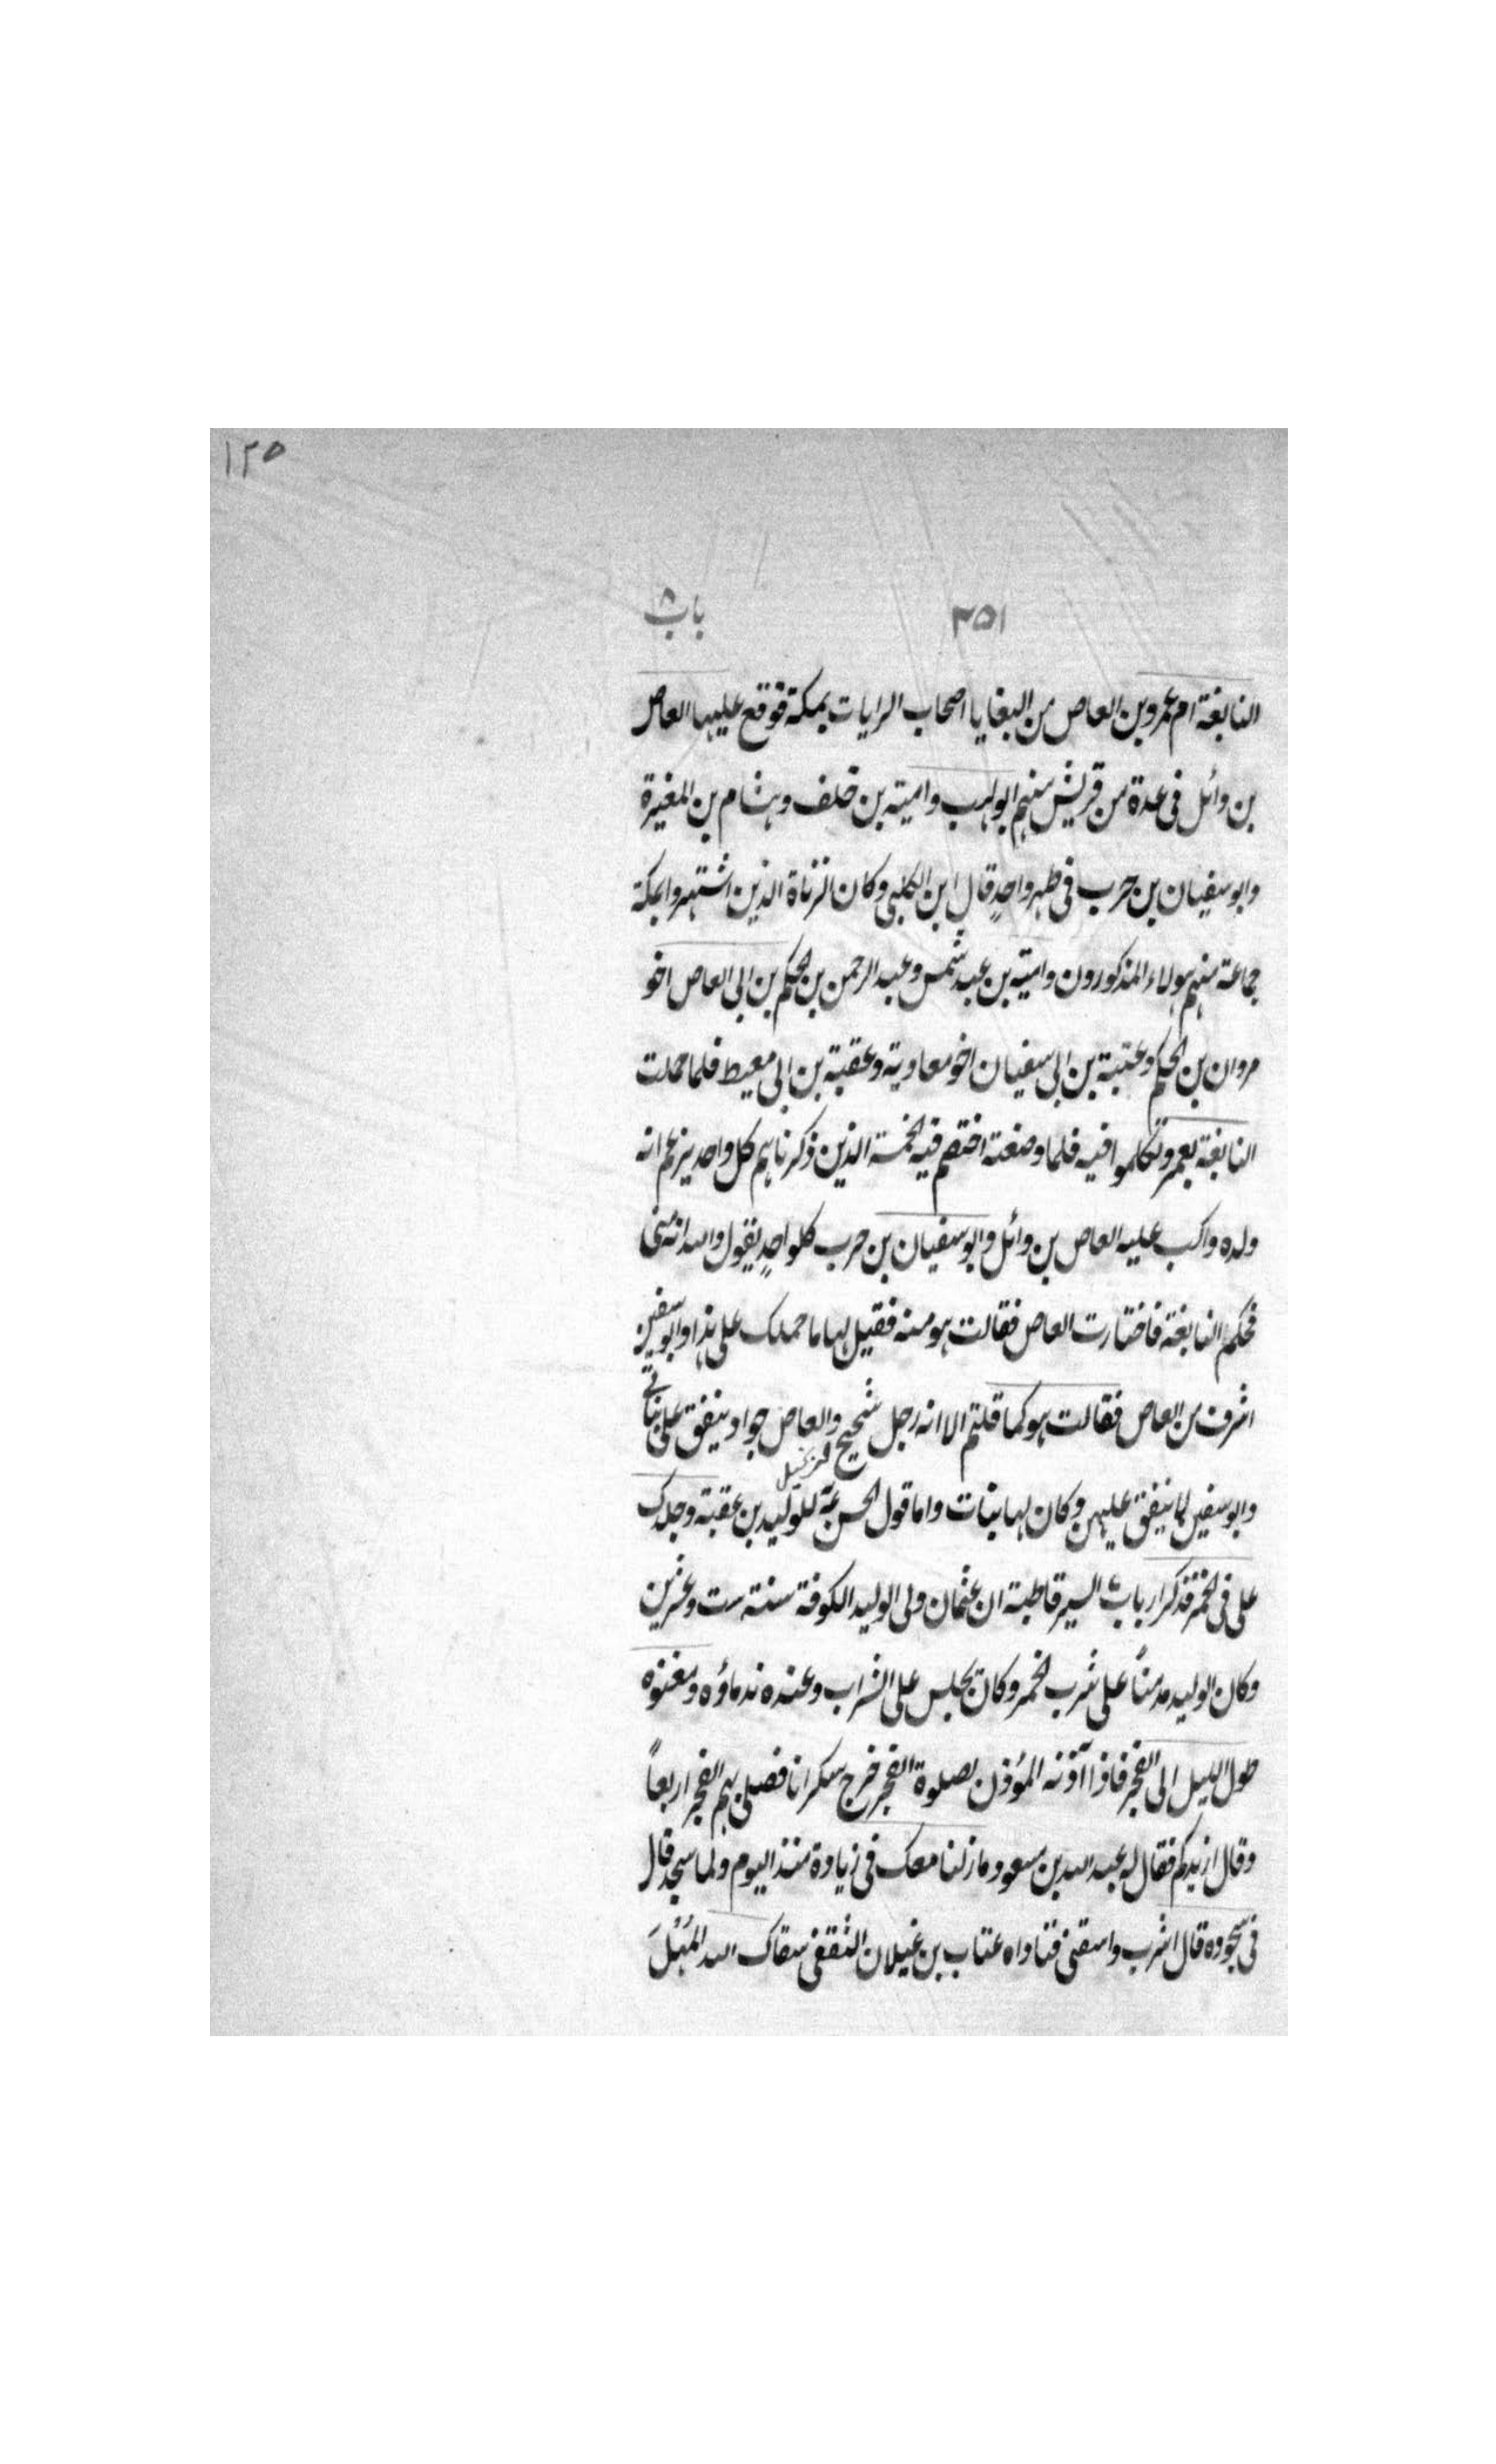 ١٢٥
٣٥١ باب ٨
النابغة ام عمرو بن العاص من البغايا اصحاب الرايات بمكة فوقع عليها العاص
بن وائل فى عدة من قريش منهم ابو لهب وامية بن خلف وهشام بن المغيرة
وابو سفيان بن حرب فى طهر واحدٍ قال ابن الكلبى وكان الزناة الذين اشتهروا بمكة
جماعة منهم هولاء المذكورون وامية بن عبد شمس وعبد الرحمن بن الحكم بن ابى العاص اخو
مروان بن الحكم وعتبة بن ابى سفيان اخو معاوية وعقبة بن ابى معيط فلما حملت
النابغة بعمرو تكلموا فيه فلما وضعته اختصم فيه الخمسة الذين ذكرناهم كل واحد يزعم انه
ولده واكب عليه العاص بن وائل وابو سفيان بن حرب كلو احدٍ يقول والله انه منى
فحكم النابغة فاختارت العاص فقالت هو منه فقيل لها ما حملك على هذا وابو سفين
اشرف من العاص فقالت هو كما قلتم الا انه رجل شحيح والعاص جواد ينفق على بناتى
وابو سفين لا ينفق عليهن وكان لها بنات واما قول الحسن للوليد بن عقبة وجلدك
على فى الخمر فذكر ارباب السير قاطبة ان عثمان ولى الوليد الكوفة سنة ست وعشرين
وكان الوليد مدمناً على شرب الخمر وكان يجلس على الشراب وعنده ندماؤه ومغنوه
طول الليل الى الفجر فاذا آذنه المؤذن بصلوة الفجر خرج سكرانا فصلى بهم الفجر اربعاً
وقال ازيدكم فقال له عبد الله بن مسعود ما زلنا معك فى زيادة منذ اليوم ولما سجد قال
فى سجوده قال اشرب واسقنى فناداه عتاب بن غيلان الثقفى سقاك الله المُهْلَ